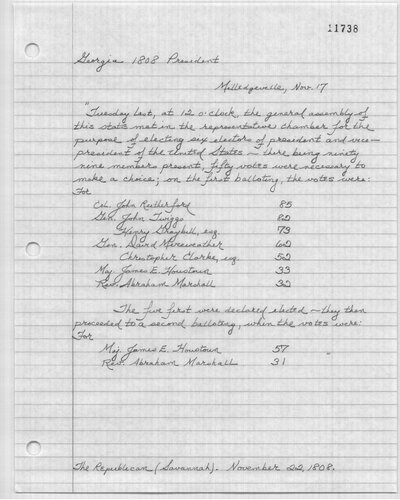 11738
Georgia 1808 President
Milledgeville, Nov. 17
"Tuesday last, at 12 o'clock, the general assembly of
this state met in the representative chamber for the
purpose of electing six electors of president and vice-
president of the United States - there being ninety
nine members present, fifty votes were necessary to
make a choice; on the first balloting, the votes were:
For
Col. John Rutherford 85
Gen. John Twiggs 82
Henry Graybill, esq. 73
Gen. David Meriweather 62
Christopher Clarke, esq. 52
Maj. James E. Houstoun 33
Rev. Abraham Marshall 32
The five first were declared elected - they then
proceeded to a second balloting, when the votes were:
For
Maj. James E. Houstoun 57
Rev. Abraham Marshall 31
The Republican (Savannah). November 22, 1808.